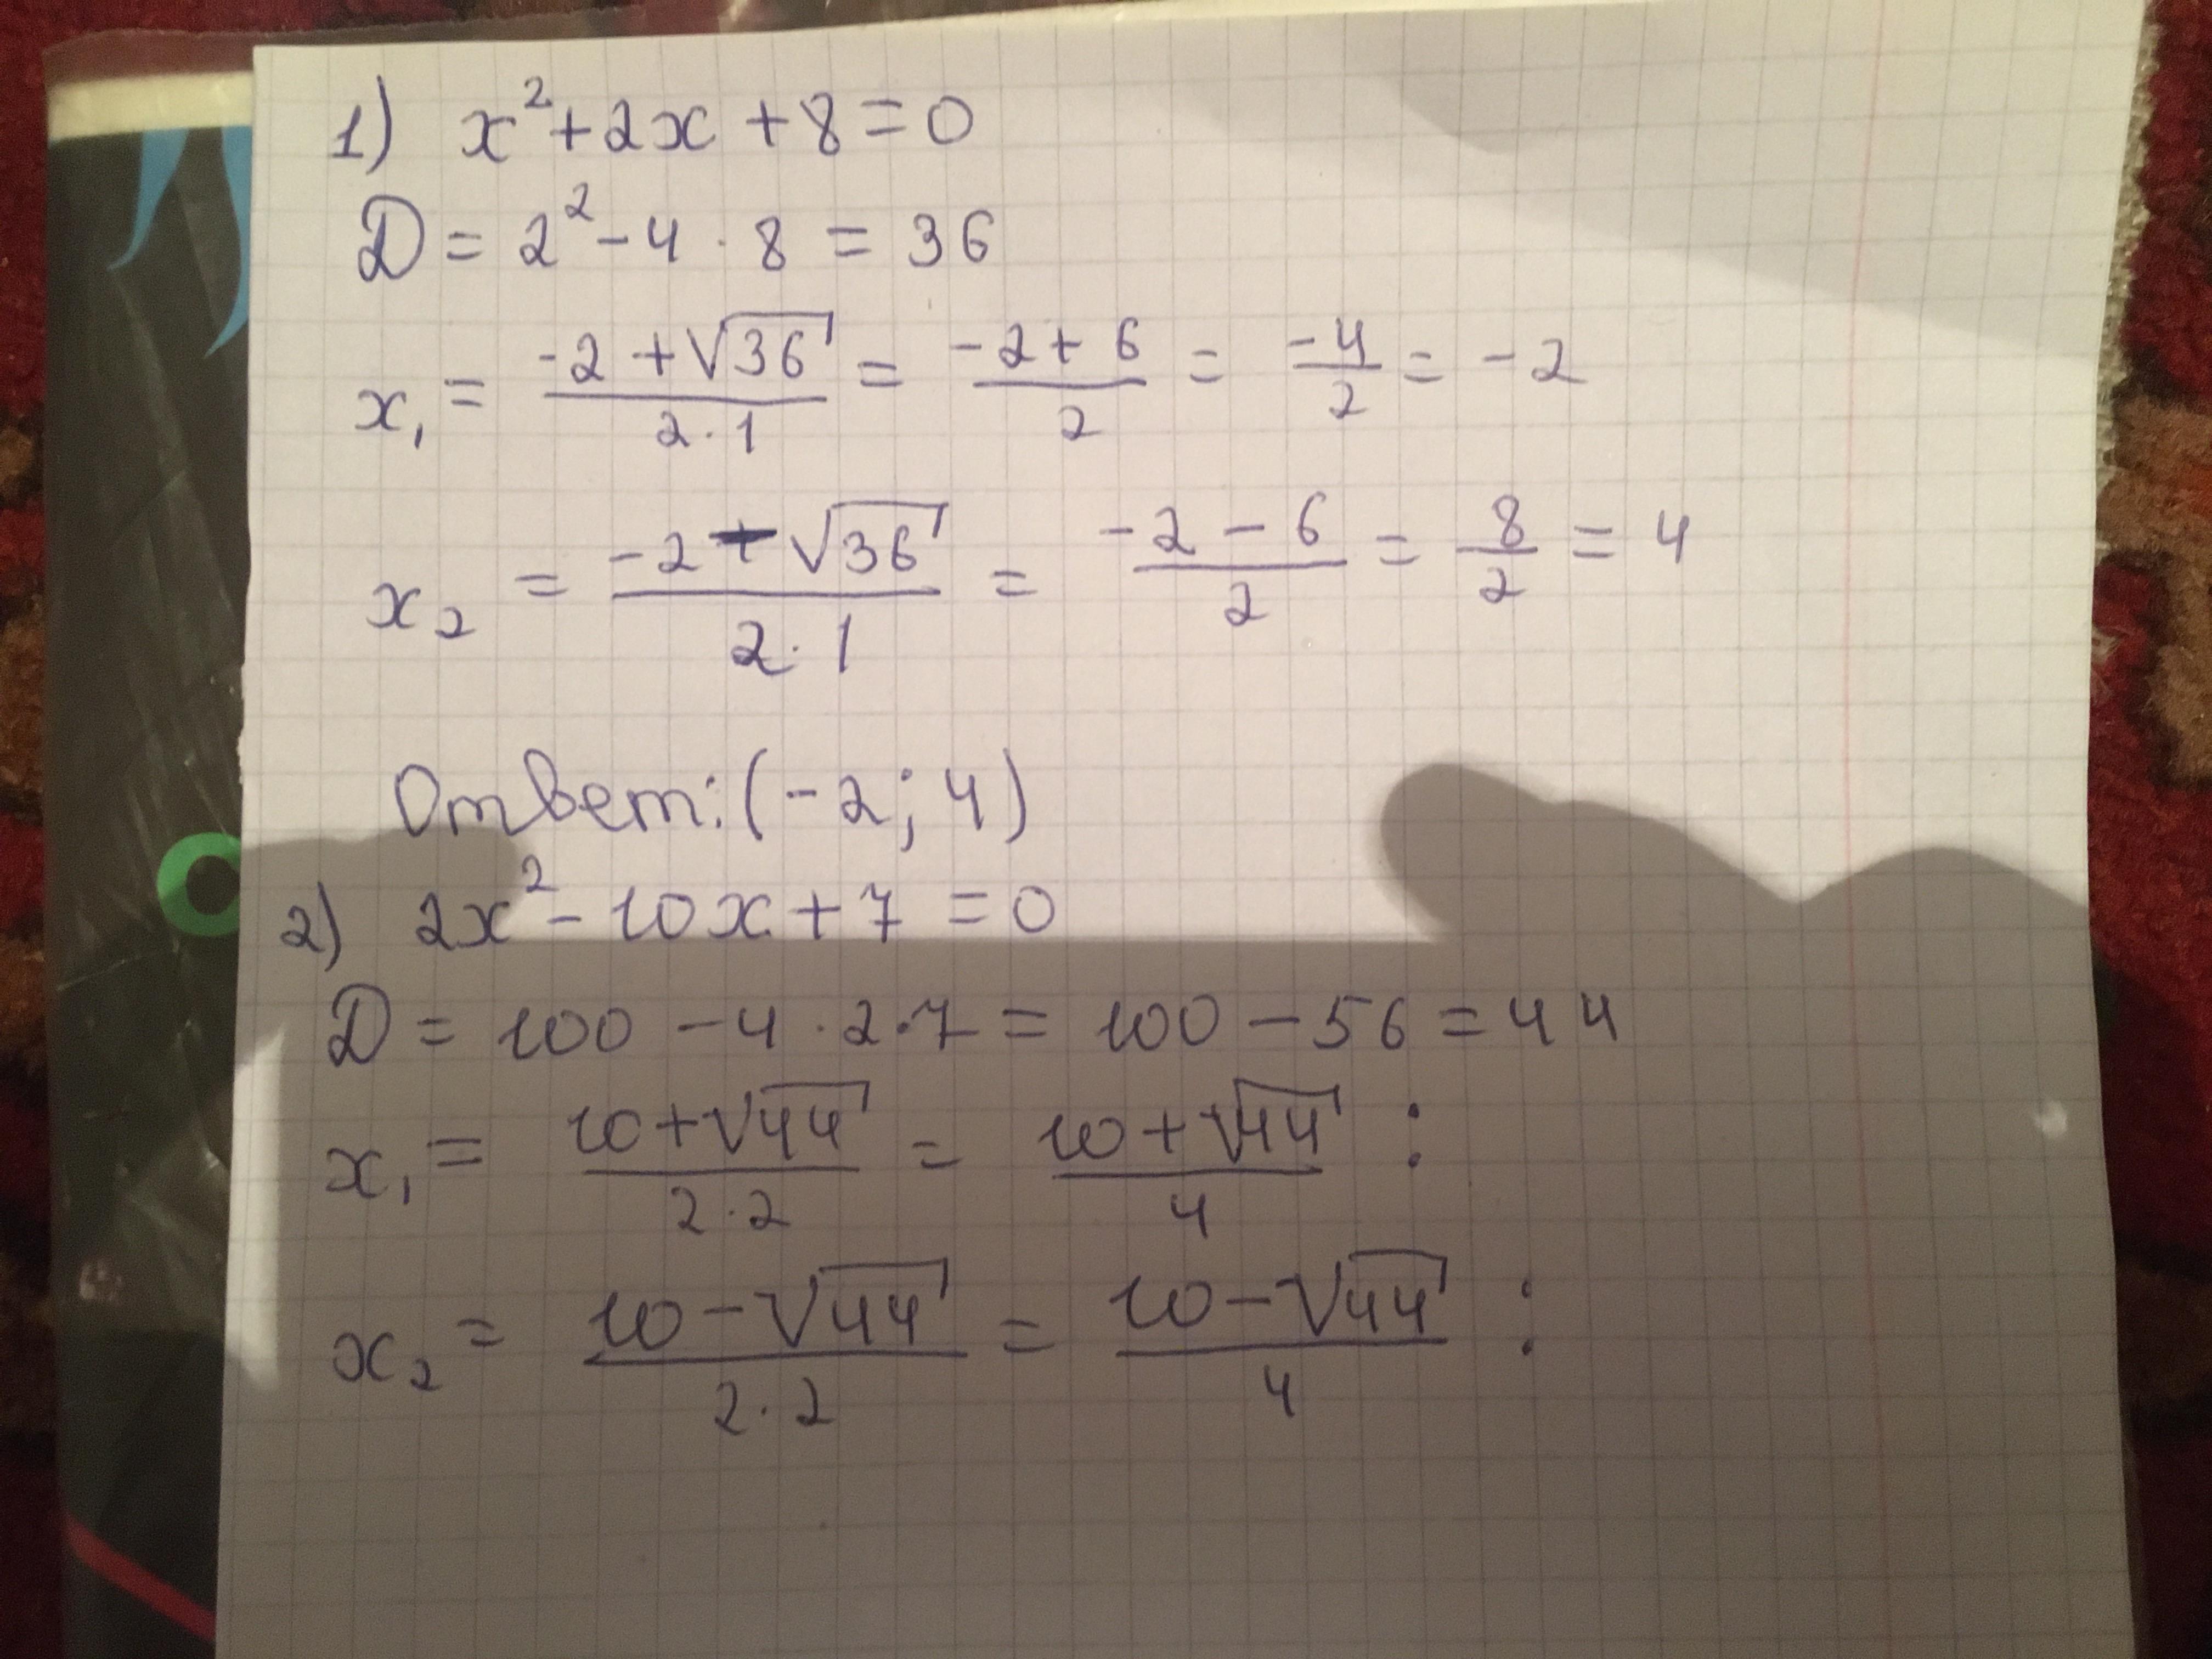 1) x²+2x+8=0
D = 2²-4·8=36
x₁ = (-2+√36)/(2·1) = (-2+6)/2 = (-4)/2 = -2
x₂ = (-2-√36)/(2·1) = (-2-6)/2 = 8/2 = 4
Ответ: (-2; 4)
2) 2x²-10x+7=0
D = 100-4·2·7 = 100-56=44
x₁ = (10+√44)/(2·2) = (10+√44)/4 :
x₂ = (10-√44)/(2·2) = (10-√44)/4 :